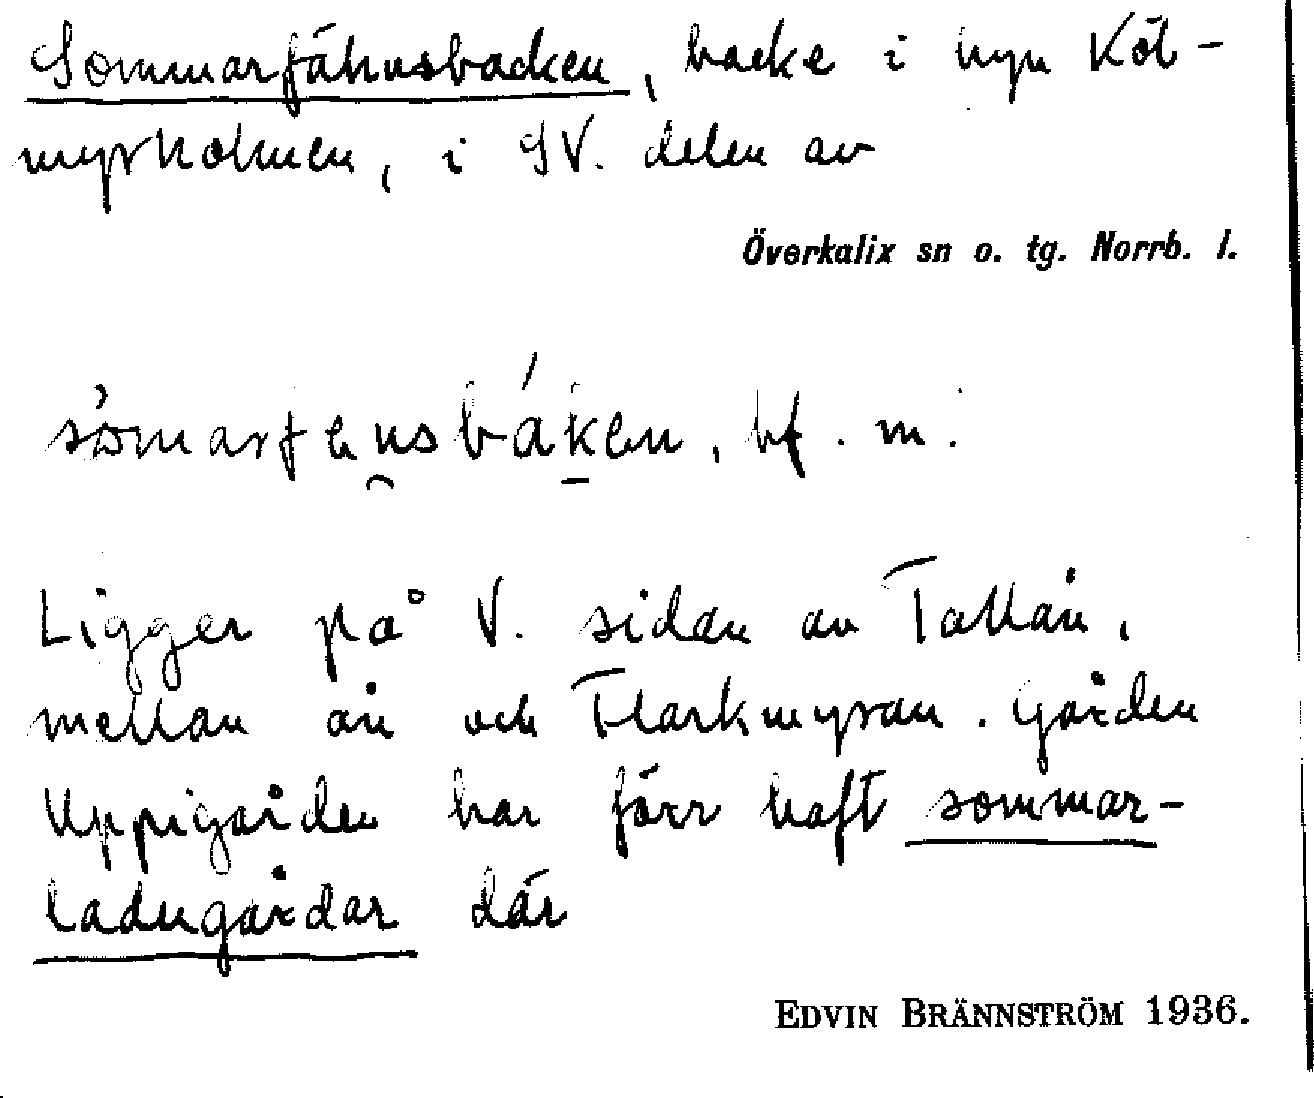 Sommarfähusbacken, backe i byn Köl-
myrholmen, i SV. delen av
Överkalix sn o. tg. Norrb. l.
bf. m.
Ligger på V. sidan av Tallån,
mellan ån och Flarkmyran. Gården
Uppigården har förr haft sommar-
ladugårdar där
EDVIN BRÄNNSTRÖM 1936.